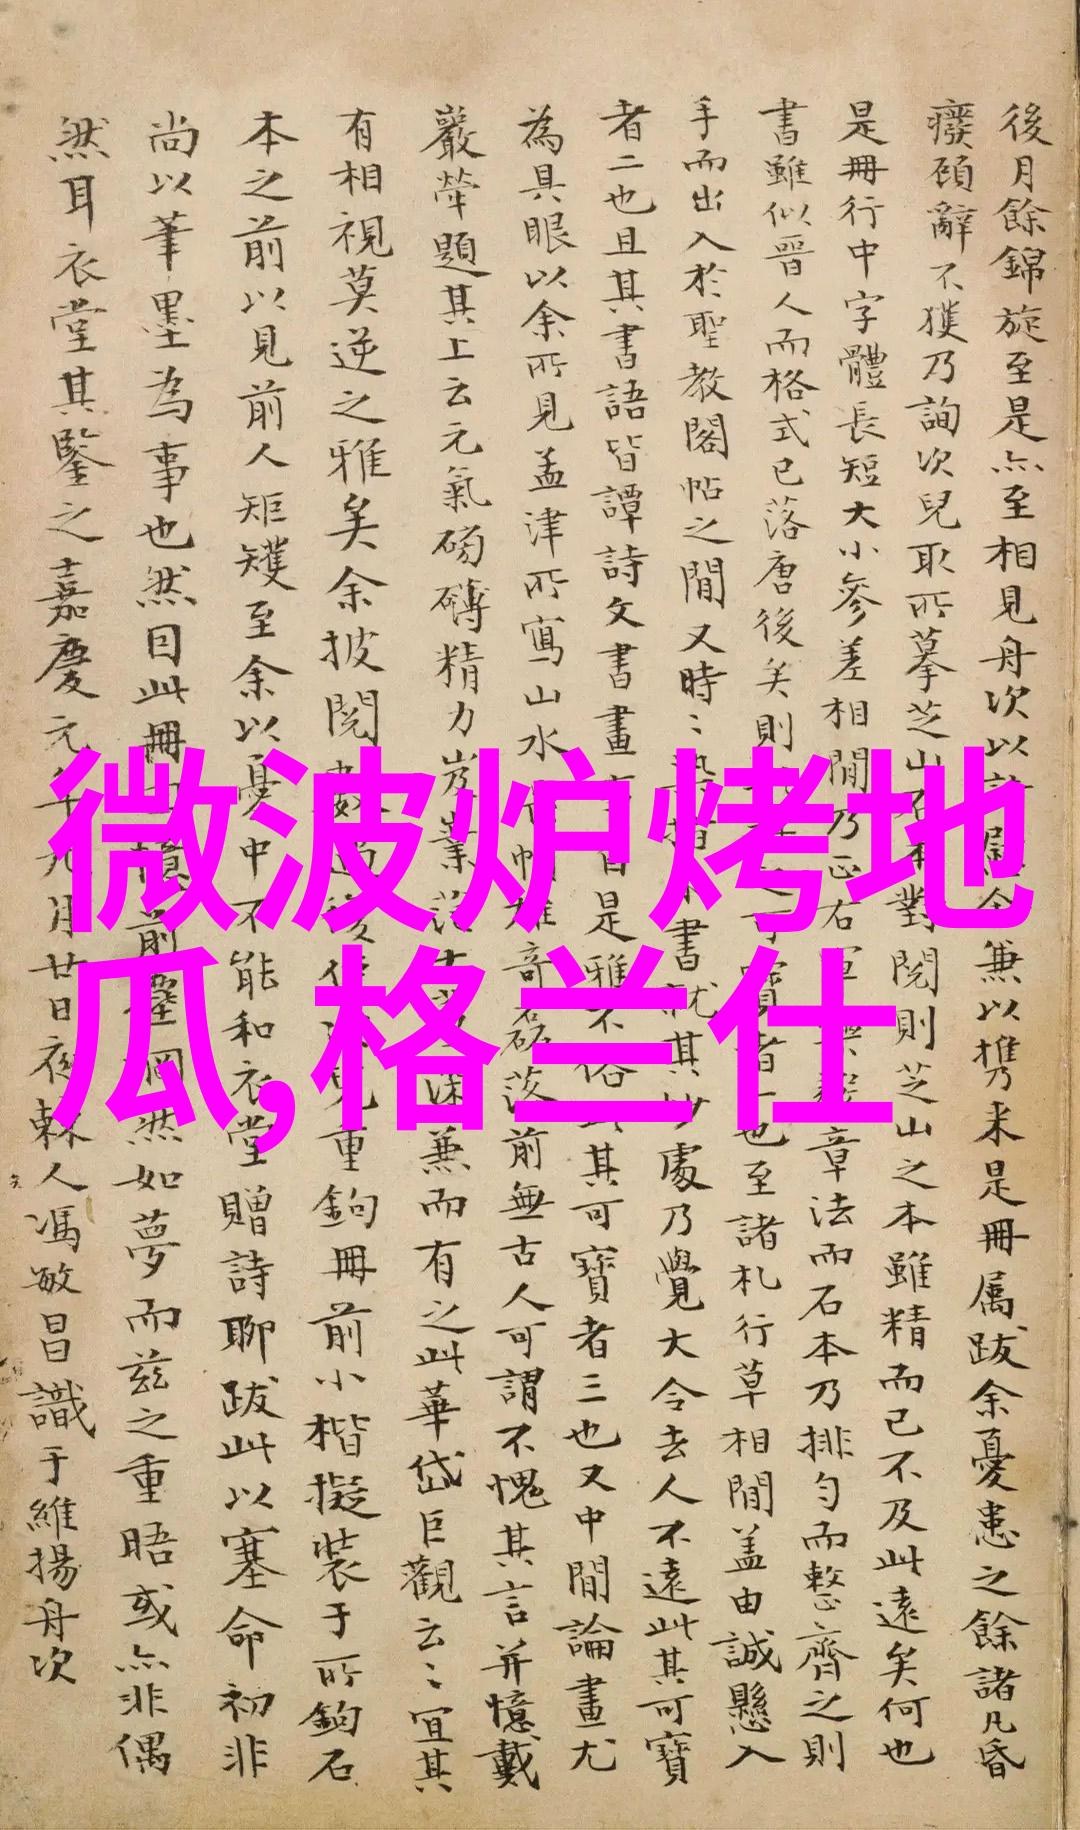 後月餘錦旋至是亦至相見舟次以兼以携来是冊屬跋余憂患之餘諸凡昏
癈頋辭不獲乃詢次兒取所摹芝山石本對閱則芝山之本雖精而已不及此遠矣何也
是冊行中字體長短大小參差相間乃正右軍章法而石本乃排勻而整齊之則
書雖似晉人而格式已落唐後矣則寶者一也至諸札行草相間盖由誠懸入
手而出入於聖教閣帖之間又時〻小書就其妙處乃覺大令去人不遠此其可寶
者二也且其書語皆譚詩文書畫自是雅不俗此其可寶者三也又中間論畫尤
為具眼以余所見孟津所寫山水雄奇磊落前無古人可謂不愧其言并憶戴
巖犖題其上云元氣磅礴精力岌業兼而有之此華岱巨觀云〻宜其
有相視莫逆之雅矣余披閱數過後重鉤冊前小楷擬裝于所鉤石
本之前以見前人矩矱至余以憂中不能和衣堂贈詩聊跋此以塞命初非
尚以筆墨為事也然因此冊前塵罔然如夢而茲之重晤或亦非偶
然耳衣堂其鑒之嘉慶元年九月廿日夜棘人馮敏昌識于維揚舟次
微波炉烤地
瓜,格兰仕